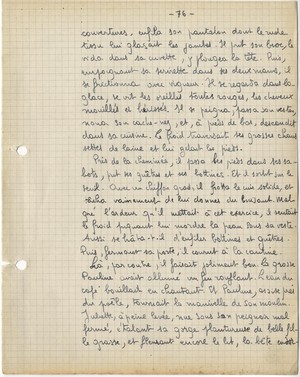 - 76 -
couvertures, enfila son pantalon dont le rude
tissu lui glaçait les jambes. Il prit son broc, le
vida dans sa cuvette, y plongea la tête. Puis,
empoignant sa serviette dans ses deux mains, il
se frictionna avec vigueur. Il se regarda dans la
glace, se vit les oreilles toutes rouges, les cheveux
mouillés et hérissés. Il se peigna, passa son veston,
noua son cache-nez, et, à pas de bas, descendit
dans sa cuisine. Le froid traversait ses grosses chaus-
settes de laine et lui gelait les pieds.
Près de la cheminée, il posa les pieds dans ses sa-
bots, put ses guêtres et ses bottines. Et il sortit sur le
seuil. Avec un chiffon gras, il frotta le cuir solide, et
vainement de lui donner du luisant. Mal-
gré l'ardeur qu'il mettait à cet exercice, il sentait
le froid piquant lui mordre la peau sous sa veste.
Aussi se hâta-t-il d'enfiler bottines et guêtres.
Puis, fermant sa porte, il courut à la cantine.
Là, par contre, il faisait joliment bon. La grosse
Pauline avait allumé un feu ronflant. L'eau du
café bouillait en chantant. Et Pauline, assise près
du poêle, tournait la manivelle de son moulin.
Juliette, à peine levée, nue sous son peignoir mal
fermé, étalant sa gorge plantureuse de belle fil-
le grasse, et fleurant encore le lit, la tête